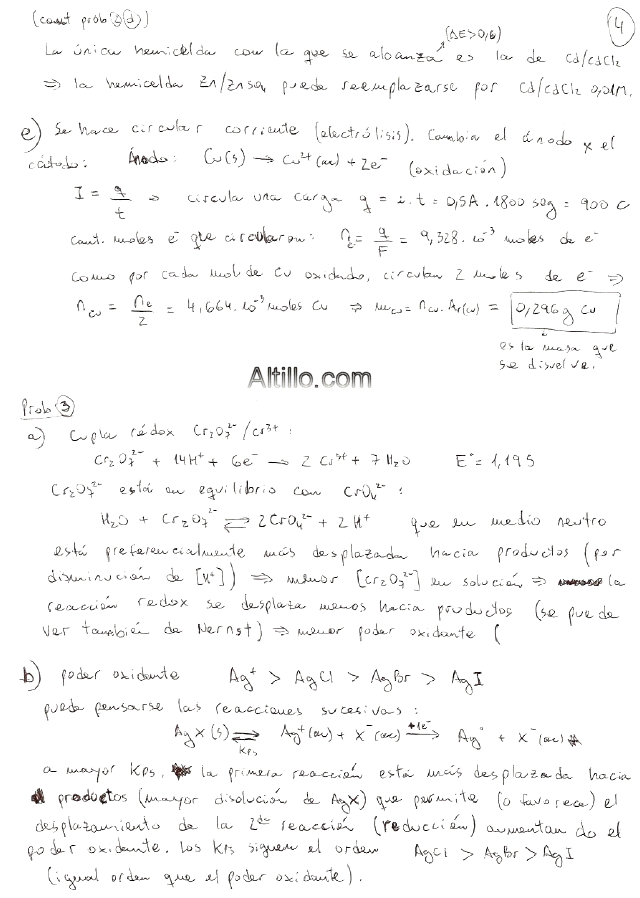 (cont prob 2(d)) 4
(ΔE>0,6)
La única hemicelda con la que se alcanza es la de Cd/CdCl2
⇒ la hemicelda Zn/ZnSO4 puede reemplazarse por Cd/CdCl2 0,01M.
e) Se hace circular corriente (electrólisis). Cambia el ánodo x el
cátodo: Ánodo: Cu(s) → Cu²⁺(ac) + 2e⁻ (oxidación)
I = q/t ⇒ circula una carga q = i.t = 0,5A . 1800 seg = 900 C
Cant. moles e⁻ que circularon: ne = q/F = 9,328.10⁻³ moles de e⁻
como por cada mol de Cu oxidado, circulan 2 moles de e⁻ ⇒
nCu = ne/2 = 4,664.10⁻³ moles Cu ⇒ mCu = nCu . Ar(Cu) = 0,296 g Cu
es la masa que
se disuelve.
Altillo.com
Prob 3
a) Cupla rédox Cr2O7²⁻/Cr³⁺ :
Cr2O7²⁻ + 14H⁺ + 6e⁻ → 2 Cr³⁺ + 7 H2O E° = 1,195
Cr2O7²⁻ está en equilibrio con CrO4²⁻ :
H2O + Cr2O7²⁻ ⇌ 2CrO4²⁻ + 2H⁺ que en medio neutro
está preferencialmente más desplazada hacia productos (por
disminución de [H⁺]) ⇒ menor [Cr2O7²⁻] en solución ⇒ la
reacción redox se desplaza menos hacia productos (se puede
ver también de Nernst) ⇒ menor poder oxidante (
b) poder oxidante Ag⁺ > AgCl > AgBr > AgI
puede pensarse las reacciones sucesivas :
AgX(s) ⇌ Kps Ag⁺(ac) + X⁻(ac) +1e⁻ → Ag° + X⁻(ac)
a mayor Kps, la primera reacción está más desplazada hacia
productos (mayor disolución de AgX) que permite (o favorece) el
desplazamiento de la 2da reacción (reducción) aumentando el
poder oxidante. Los Kps siguen el orden AgCl > AgBr > AgI
(igual orden que el poder oxidante).